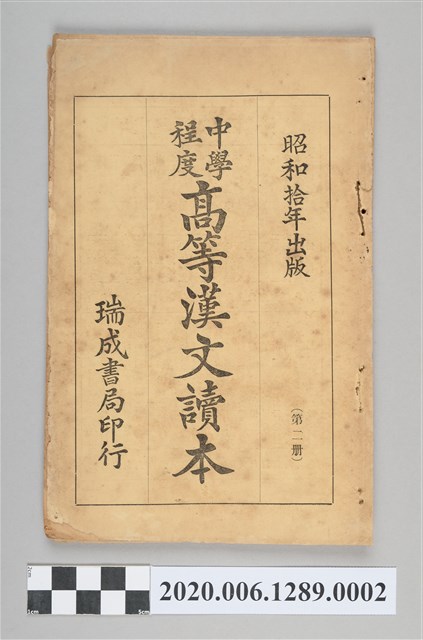 昭和拾年出版
(第二册)
中學程度
高等漢文讀本
瑞成書局印行
2cm
1cm
5cm
2020.006.1289.0002